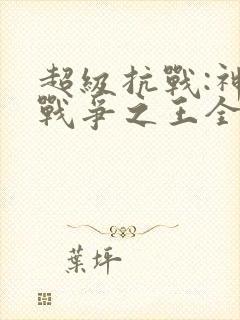 超級抗戰:神
戰爭之王全
葉坪